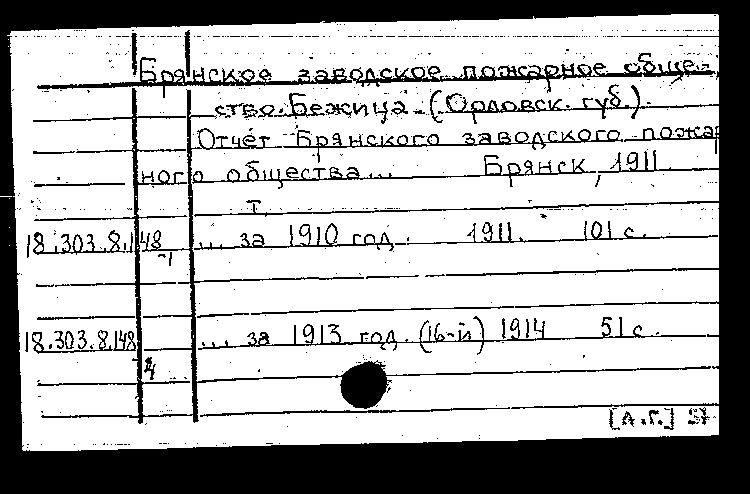 Брянское заводское пожарное общес-
ство. Бежица. (Орловск. губ.).
Отчёт Брянского заводского пожар
ного общества... Брянск, 1911
т.
18.303.8.148 ... за 1910 год. 1911. 101 с.
-1
18.303.8.148 ... за 1913 год. (16-й) 1914 51 с.
4
[А.Г.] 57